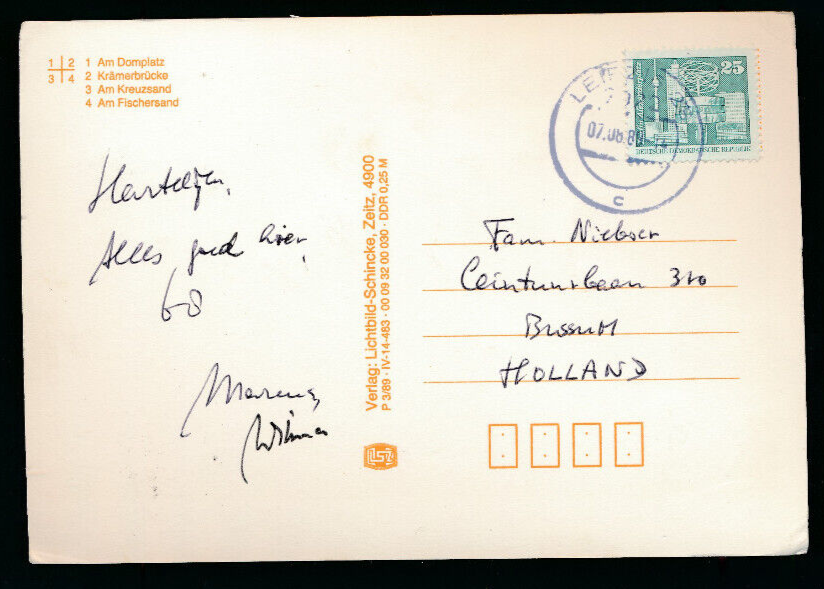 1 2 1 Am Domplatz
3 4 2 Krämerbrücke
3 Am Kreuzsand
4 Am Fischersand
Alles goed hier,
Verlag: Lichtbild-Schincke, Zeitz, 4900
P 3/89 · IV-14-483 · 00 09 32 00 030 · DDR 0,25 M
25
DEUTSCHE DEMOKRATISCHE REPUBLIK
LEIPZ
07.08.89
c
Fam.
Ceintuurbaan 310
Bussum
HOLLAND